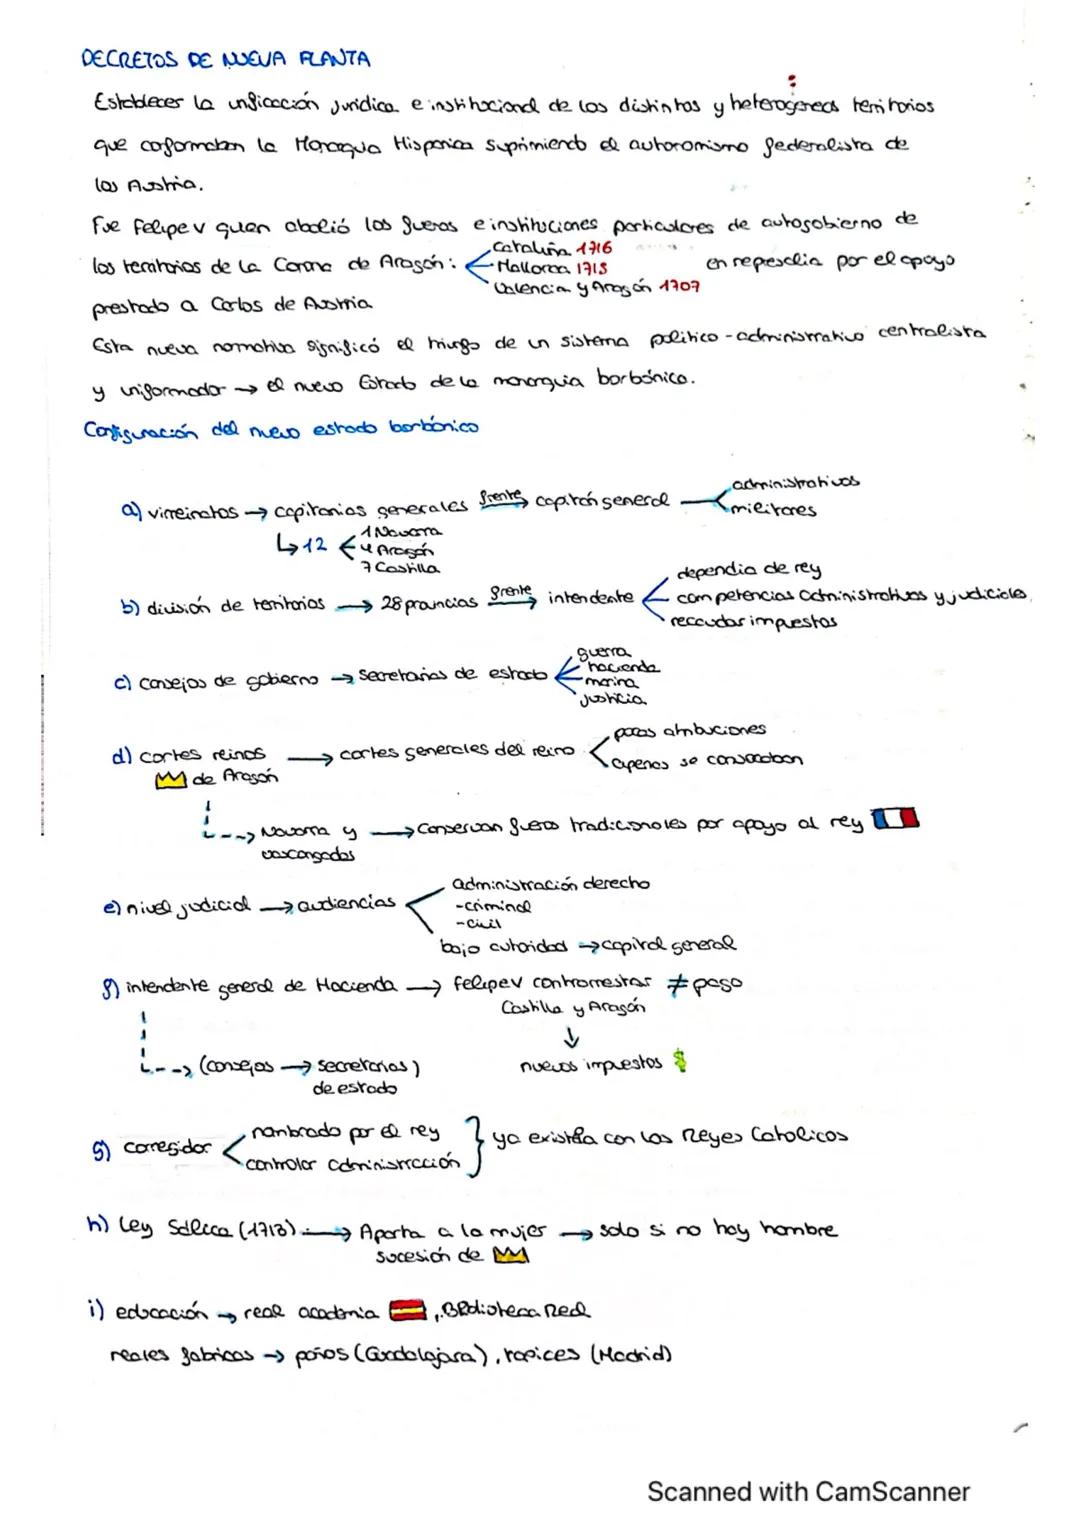 DECRETOS DE NUEVA PLANTA
Establecer la unificación jurídica e institucional de los distintos y heterogeneos territorios
que conformaban la Monarquía Hispánica suprimiendo el autonomismo federalista de
los Austria.
Fue Felipe V quien abolió los fueros e instituciones particulares de autogobierno de
los territorios de la Corona de Aragón: Cataluña 1716
Mallorca 1715
Valencia y Aragón 1707
en represalia por el apoyo
prestado a Carlos de Austria
Esta nueva normativa significó el triunfo de un sistema político-administrativo centralista
y uniformador → el nuevo Estado de la monarquía borbónica.
Configuración del nuevo estado borbónico
a) virreinatos → capitanías generales frente → capitán general administrativos
militares
↳ 12 1 Navarra
4 Aragón
7 Castilla
b) división de territorios → 28 provincias frente → intendente dependía de rey
competencias administrativas y judiciales
recaudar impuestos
c) consejos de gobierno → secretarias de estado guerra
hacienda
marina
justicia
d) cortes reinos → cortes generales del reino pocas atribuciones
apenas se convocaban
de Aragón
Navarra y → conservan fueros tradicionales por apoyo al rey
vascongadas
e) nivel judicial → audiencias administración derecho
-criminal
-civil
bajo autoridad → capital general
f) intendente general de Hacienda → Felipe V contrarrestar ≠ pago
Castilla y Aragón
↓
nuevos impuestos $
(consejos → secretarias)
de estado
g) corregidor nombrado por el rey
controlar administración
ya existía con los Reyes Católicos
h) Ley Sálica (1713) → Aparta a la mujer → solo si no hay hombre
sucesión de
i) educación → real academia , Biblioteca Real
reales fabricas → paños (Guadalajara), tapices (Madrid)
Scanned with CamScanner